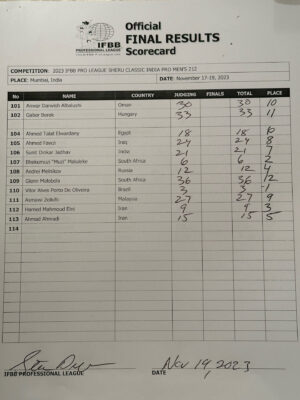 Official
FINAL RESULTS
Scorecard
IFBB
PROFESSIONAL LEAGUE
COMPETITION: 2023 IFBB PRO LEAGUE SHERU CLASSIC INDIA PRO MEN'S 212
PLACE: Mumbai, India DATE: November 17-19, 2023
No NAME COUNTRY JUDGING FINALS TOTAL PLACE
101 Anwar Darwish Oman 30 30 10
102 Gabor Borok Hungary 33 33 11
104 Ahmed Talat Elwardany Egypt 18 18 6
105 Ahmed Fawzi Iraq 24 24 8
106 Sumit Omkar Jadhav India 21 21 7
107 Bhekumuzi "Muzi" Maluleke South Africa 6 6 2
108 Andrei Melnikov Russia 12 12 4
109 Glenn South Africa 36 36 12
110 Vitor Alves Porto De Oliveira Brazil 3 3 1
111 Asmawi Zolkifli Malaysia 27 27 9
112 Hamed Mahmoud Iran 9 9 3
113 Ahmad Ahmadi Iran 15 15 5
114
Nov 19, 2023
IFBB PROFESSIONAL LEAGUE DATE